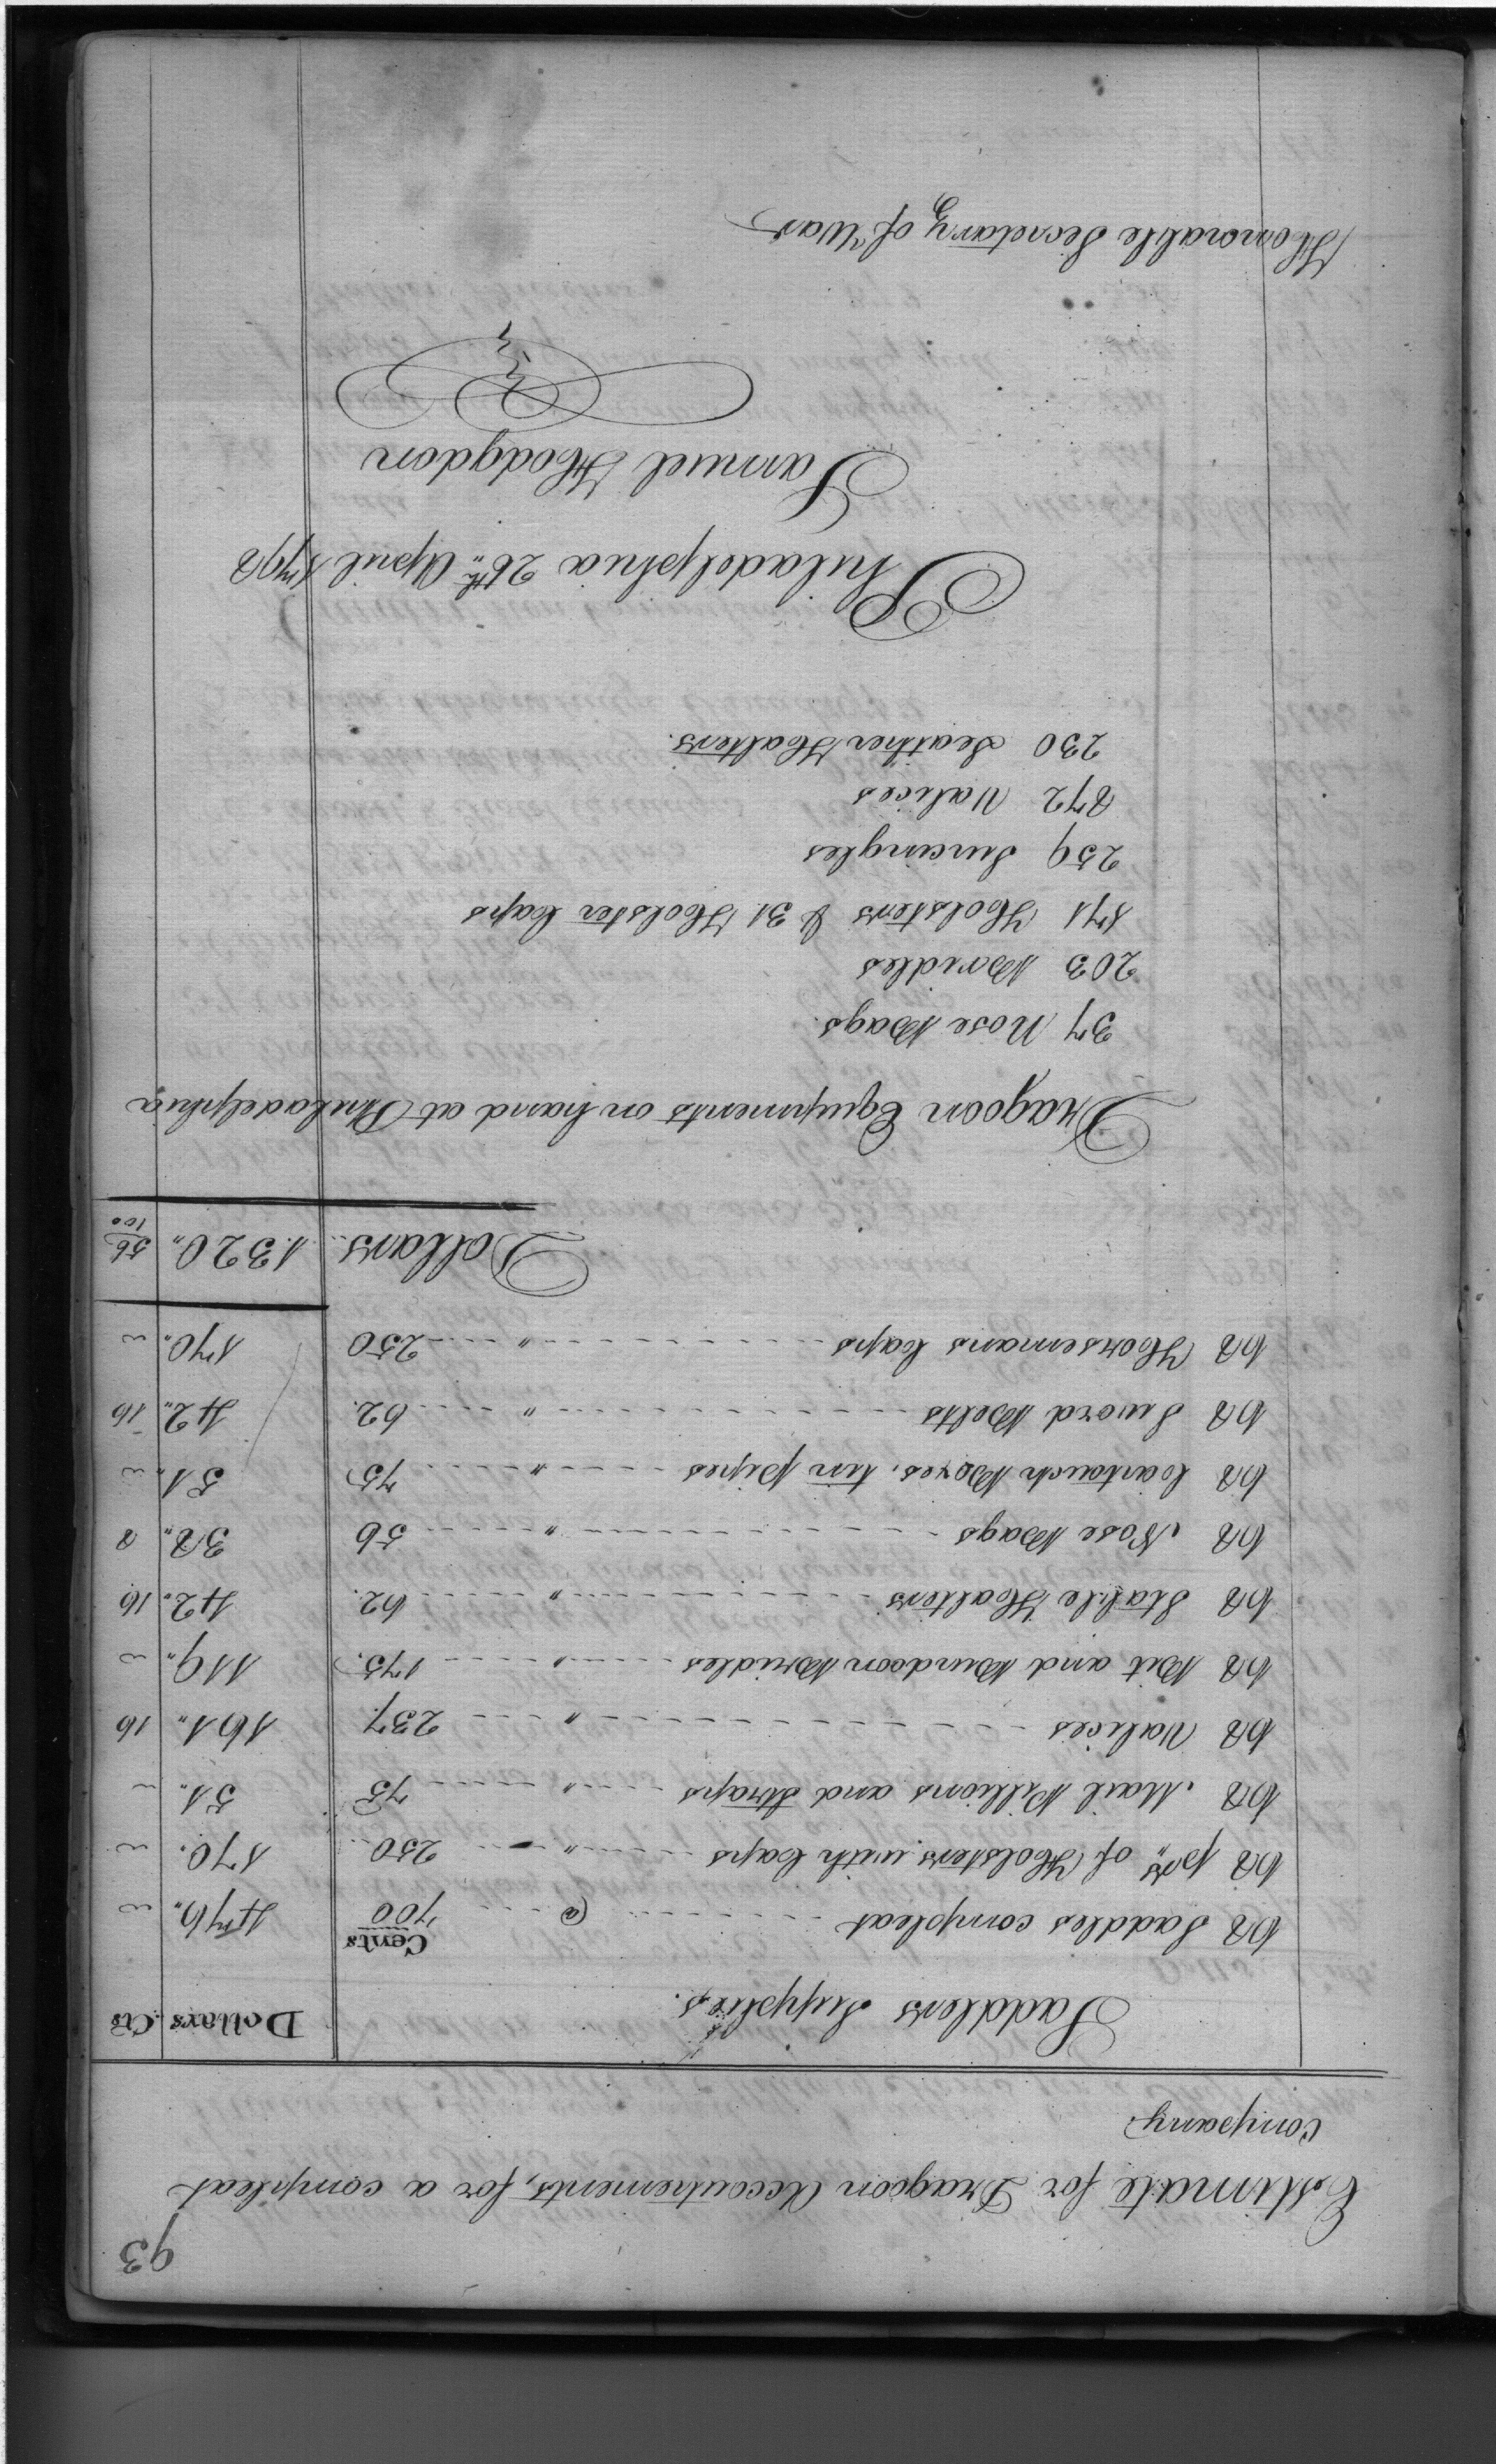 93
Estimate for Dragoon Accoutrements, for a compleat
Company
Saddlers Supplies. Dollars Cts
Cents
68 Saddles compleat @ 700 476 "
68 prs of Holsters, with Caps " 250 170 "
68 Mail Pillions and Straps " 75 51 "
68 Valices " 237 161 16
68 Bit and Burdoon Bridles " 175 119 "
68 Stable Halters " 62 42 16
68 Nose Bags " 56 38 8
68 Cartouch Boxes, tin Pipes " 75 51 "
68 Sword Belts " 62 42 16
68 Horsemans Caps " 250 170 "
Dollars 1.320 56/100
Dragoon Equipments on hand at Philadelphia
37 Nose Bags
203 Bridles
171 Holsters & 31 Holster Caps
259 Surcingles
872 Valices
230 Leather Halters.
Philadelphia 26th April 1798
Samuel Hodgdon
Honorable Secretary of War